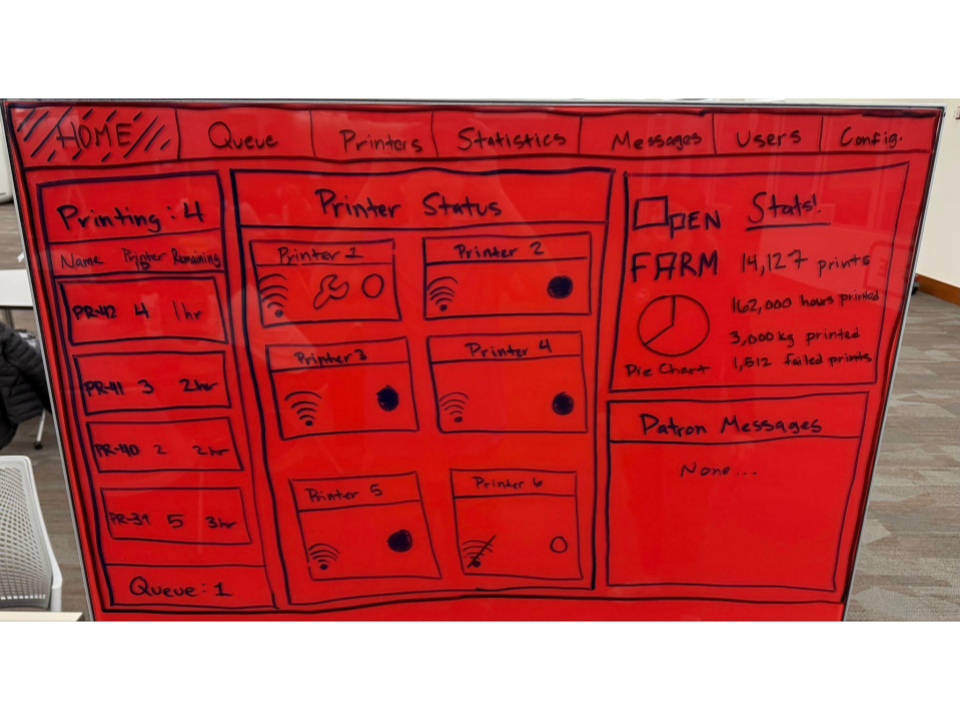 HOME Queue Printers Statistics Messages Users Config.
Printing: 4
Name Printer ID Remaining
PR-42 4 1hr
PR-41 3 2hr
PR-40 2 2hr
PR-39 5 3hr
Queue: 1
Printer Status
Printer 1
Printer 2
Printer 3
Printer 4
Printer 5
Printer 6
OPEN
FARM
Pie Chart
Stats!
14,127 prints
162,000 hours printed
3,000 kg printed
1,512 failed prints
Patron Messages
None...